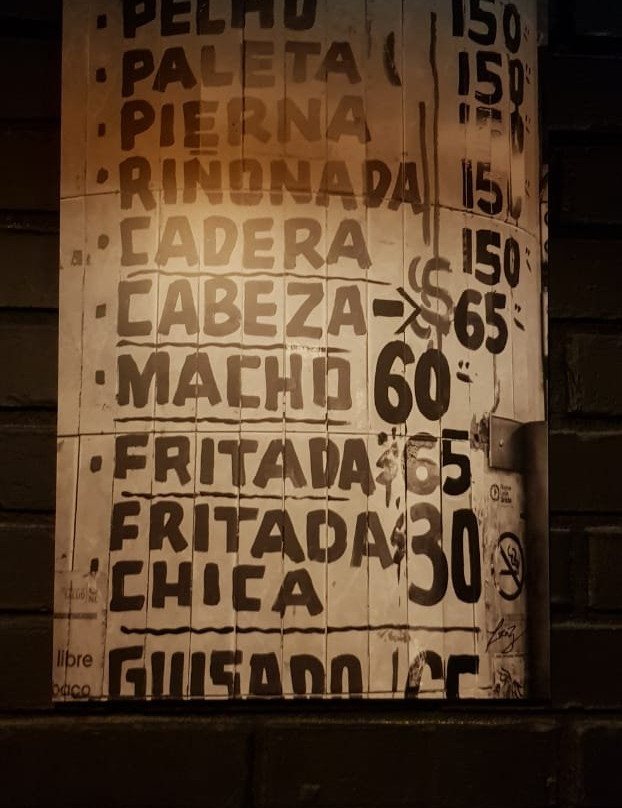 PECHO 150
PALETA 150
PIERNA 150
RIÑONADA 150
CADERA 150
CABEZA → $65
MACHO 60
FRITADA $65
FRITADA $30
CHICA
GUISADO
libre